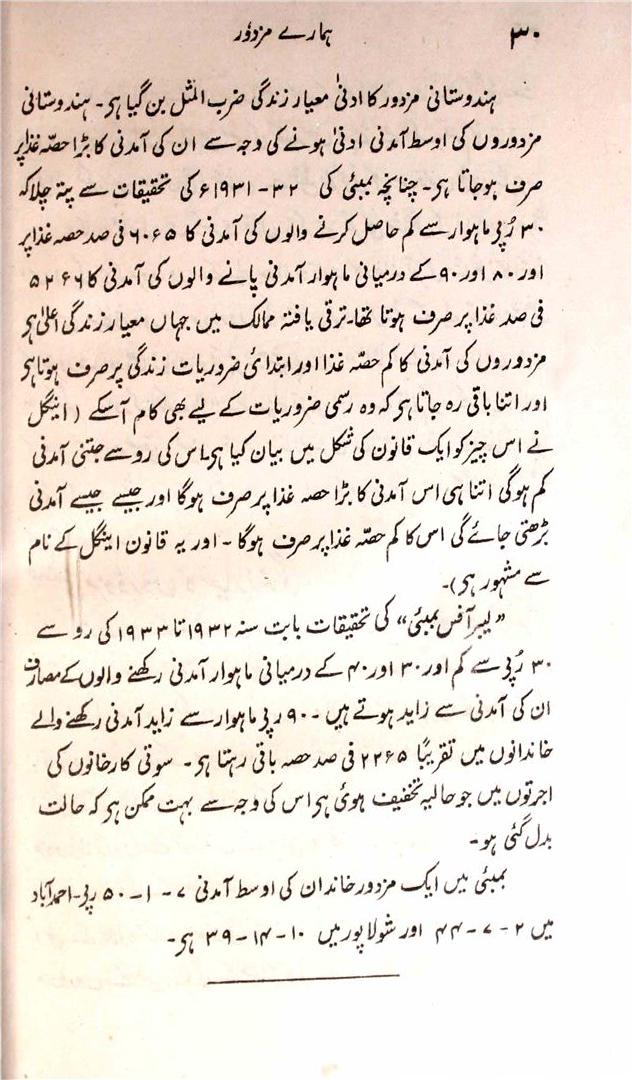 ۳۰ ہمارے مزدور
ہندوستانی مزدور کا ادنیٰ معیار زندگی ضرب المثل بن گیا ہی۔ ہندوستانی
مزدوروں کی اوسط آمدنی ادنیٰ ہونے کی وجہ سے ان کی آمدنی کا بڑا حصّہ غذا پر
صرف ہوجاتا ہی۔ چنانچہ بمبئی کی ۳۲-۱۹۳۱ء کی تحقیقات سے پتہ چلا کہ
۳۰ رُپی ماہوار سے کم حاصل کرنے والوں کی آمدنی کا ۶۰۶۵ فی صد حصہ غذا پر
اور ۸۰ اور ۹۰ کے درمیانی ماہوار آمدنی پانے والوں کی آمدنی کا ۵۲۶۶
فی صد غذا پر صرف ہوتا تھا۔ ترقی یافتہ ممالک میں جہاں معیار زندگی اعلیٰ ہی
مزدوروں کی آمدنی کا کم حصّہ غذا اور ابتدائ ضروریات زندگی پر صرف ہوتا ہی
اور اتنا باقی رہ جاتا ہی کہ وہ رسمی ضروریات کے لیے بھی کام آسکے (اینگل
نے اس چیز کو ایک قانون کی شکل میں بیان کیا ہی۔ اس کی رو سے جتنی آمدنی
کم ہوگی اتنا ہی اس آمدنی کا بڑا حصہ غذا پر صرف ہوگا اور جیسے جیسے آمدنی
بڑھتی جائے گی اس کا کم حصّہ غذا پر صرف ہوگا ۔ اور یہ قانون اینگل کے نام
سے مشہور ہی)۔
”لیبر آفس بمبئی“ کی تحقیقات بابت سنہ ۱۹۳۲ تا ۱۹۳۳ کی رو سے
۳۰ رُپی سے کم اور ۳۰ اور ۴۰ کے درمیانی ماہوار آمدنی رکھنے والوں کے مصارف
ان کی آمدنی سے زاید ہوتے ہیں ۔ ۹۰ رپی ماہوار سے زاید آمدنی رکھنے والے
خاندانوں میں تقریباً ۲۲۶۵ فی صد حصہ باقی رہتا ہی ۔ سوتی کارخانوں کی
اجرتوں میں جو حالیہ تخفیف ہوئی ہی اس کی وجہ سے بہت ممکن ہی کہ حالت
بدل گئی ہو۔
بمبئی میں ایک مزدور خاندان کی اوسط آمدنی ۷-۱-۵۰ رپی۔ احمدآباد
میں ۲-۷-۴۴ اور شولاپور میں ۱۰-۱۴-۳۹ ہی۔